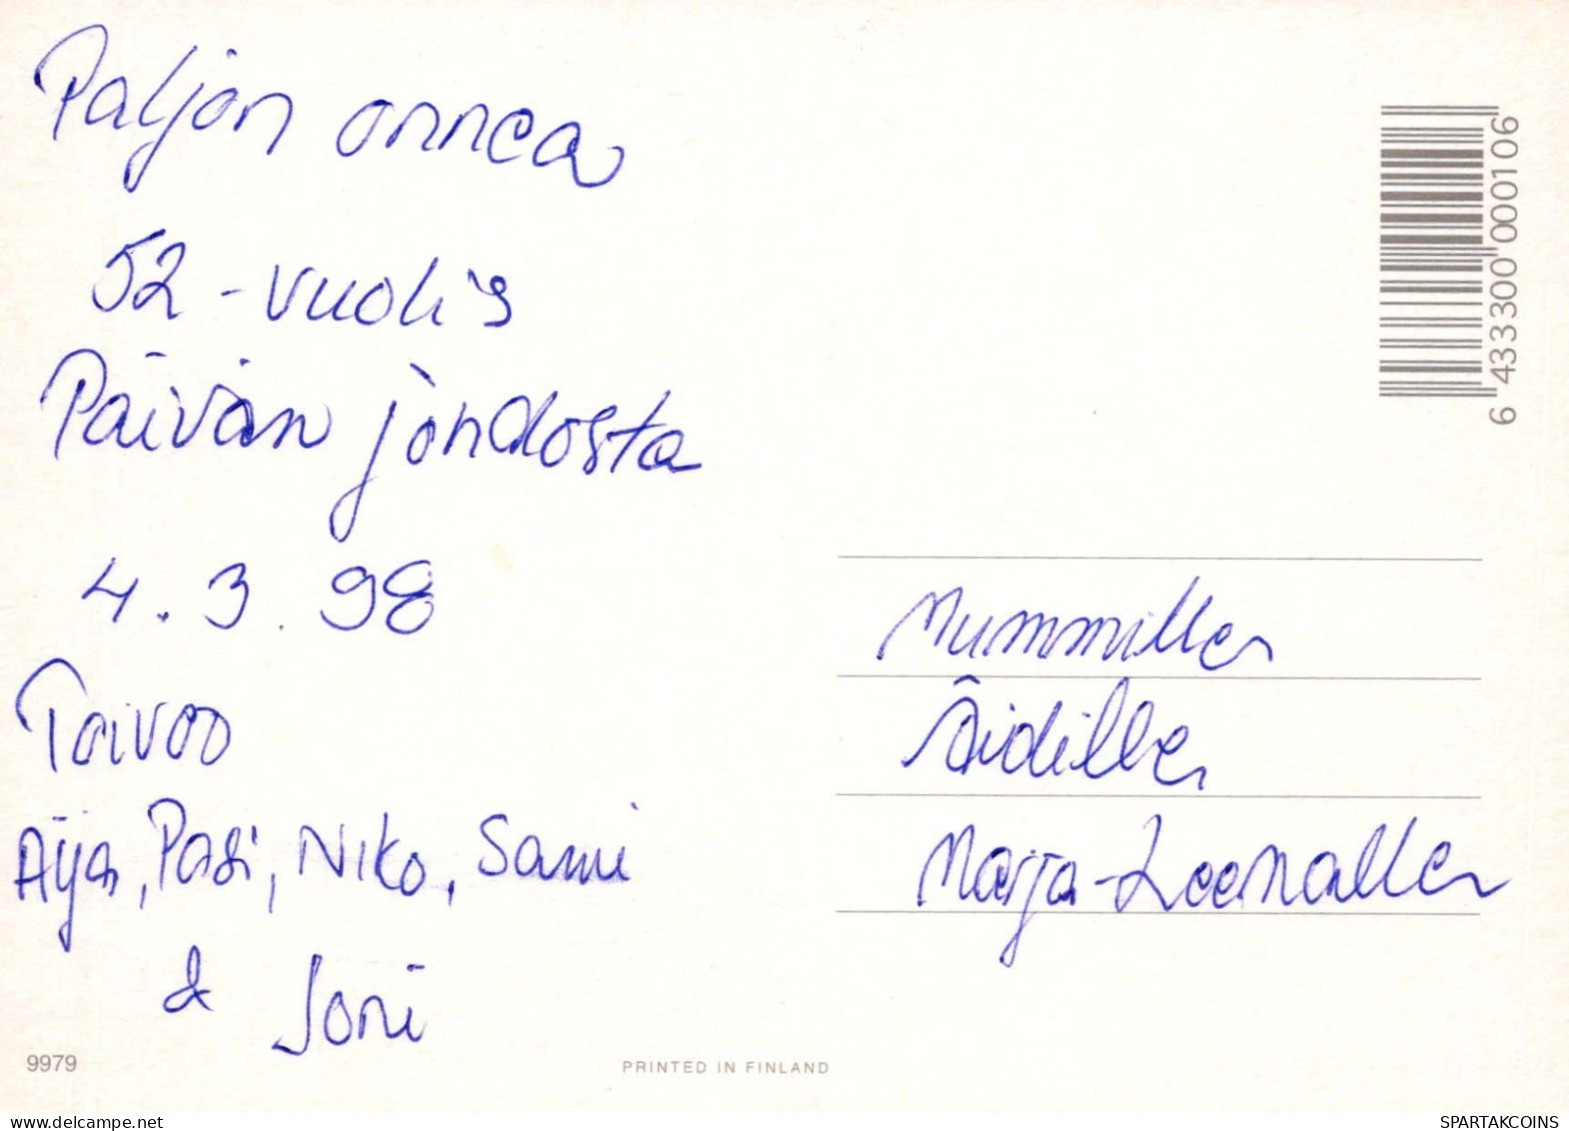 Paljon onnea
52-vuotis
Päivän johdosta
4.3.98
Toivoo
Aija, Pasi, Niko, Sami
& Joni
9979
PRINTED IN FINLAND
6 433300 000106
Mummille
Äidille
Marja-Leenalle
www.delcampe.net
SPARTAKCOINS